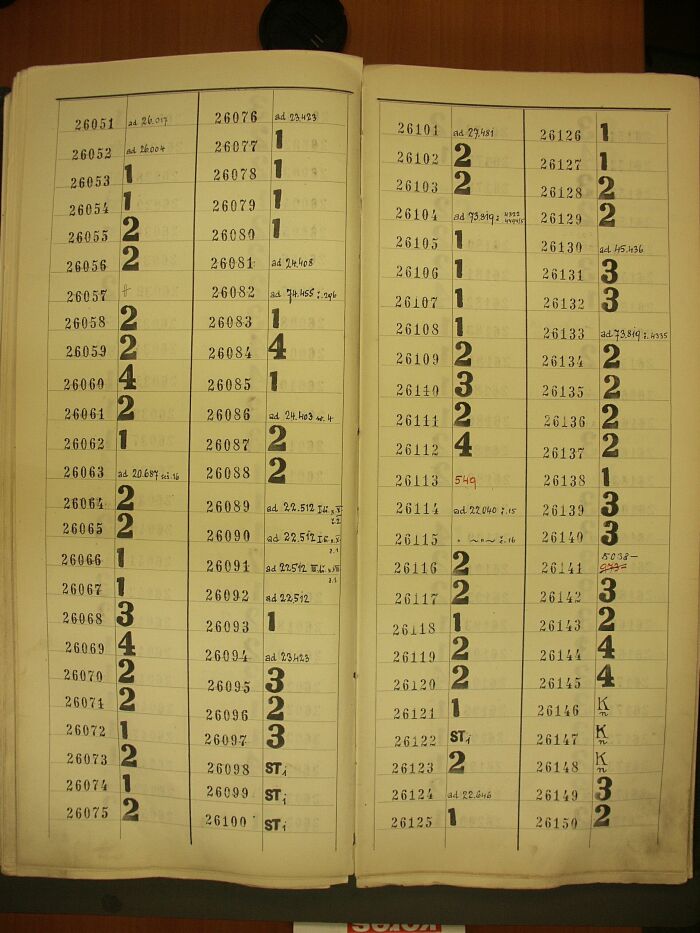 26051 ad 26.017
26052 ad 26.004
26053 1
26054 1
26055 2
26056 2
26057 +
26058 2
26059 2
26060 4
26061 2
26062 1
26063 ad 20.687
26064 2
26065 2
26066 1
26067 1
26068 3
26069 4
26070 2
26071 2
26072 1
26073 2
26074 1
26075 2
26076 ad 23.423
26077 1
26078 1
26079 1
26080 1
26081 ad 24.408
26082 ad 74.455 i. 296
26083 1
26084 4
26085 1
26086 ad 24.403 nr. 4
26087 2
26088 2
26089 ad 22.512
26090 ad 22.512
26091 ad 22512
26092 ad 22.512
26093 1
26094 ad 23.423
26095 3
26096 2
26097 3
26098 ST i
26099 ST i
26100 ST i
26101 ad 27.481
26102 2
26103 2
26104 ad 73.819 i.
26105 1
26106 1
26107 1
26108 1
26109 2
26110 3
26111 2
26112 4
26113 549
26114 ad 22.040 i. 15
26115 " ~"~ i. 16
26116 2
26117 2
26118 1
26119 2
26120 2
26121 1
26122 ST i
26123 2
26124 ad 22.646
26125 1
26126 1
26127 1
26128 2
26129 2
26130 ad 45.436
26131 3
26132 3
26133 ad 73.819 i. 4335
26134 2
26135 2
26136 2
26137 2
26138 1
26139 3
26140 3
26141 5038-
26142 3
26143 2
26144 4
26145 4
26146 K n
26147 K n
26148 K n
26149 3
26150 2